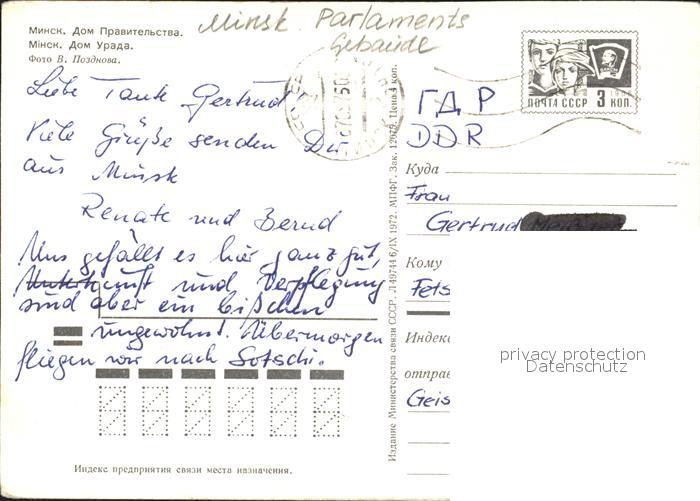 Минск. Дом Правительства.
Мінск. Дом Урада.
Фото В. Позднова.
Minsk Parlaments
Gebäude
Liebe Tante Gertrud,
Viele Grüße senden Dir
aus Minsk
Renate und Bernd
Uns gefällt es hier ganz gut,
Unterkunft und Verpflegung
sind aber ein bißchen
ungewohnt. Übermorgen
fliegen wir nach Sotschi.
Индекс предприятия связи места назначения.
Издание Министерства связи СССР. 1/49744 6/IX 1972. МПФГ. Зак. 12079. Цена 4 коп.
ПОЧТА СССР 3 КОП.
ГДР
DDR
Куда
Frau
Gertrud
Кому
Fets
Индекс
отправ
Geis
privacy protection
Datenschutz